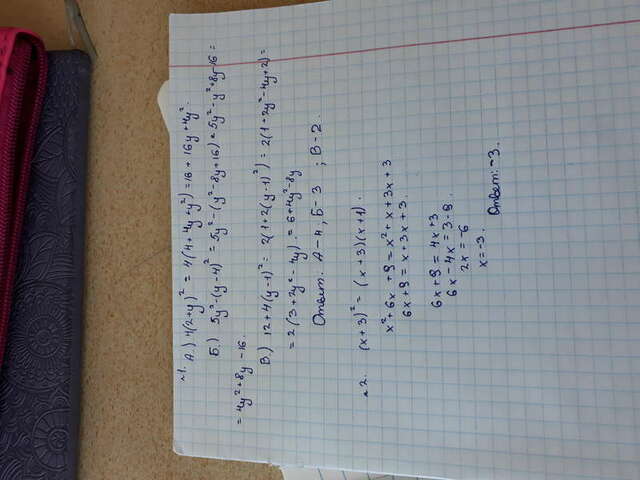 №1. А.) 4(2+y)² = 4(4+4y+y²)=16+16y+4y².
Б.) 5y²-(y-4)² = 5y²-(y²-8y+16) = 5y²-y²+8y-16 =
= 4y²+8y-16.
В.) 12+4(y-1)² = 2(1+2(y-1)²) = 2(1+2y²-4y+2) =
= 2(3+2y²-4y) = 6+4y²-8y
Ответ. А-4; Б-3 ; В-2.
№2. (x+3)² = (x+3)(x+1).
x²+6x+9=x²+x+3x+3
6x+9=x+3x+3.
6x+9=4x+3
6x-4x=3-9.
2x=-6
x=-3.
Ответ: -3.